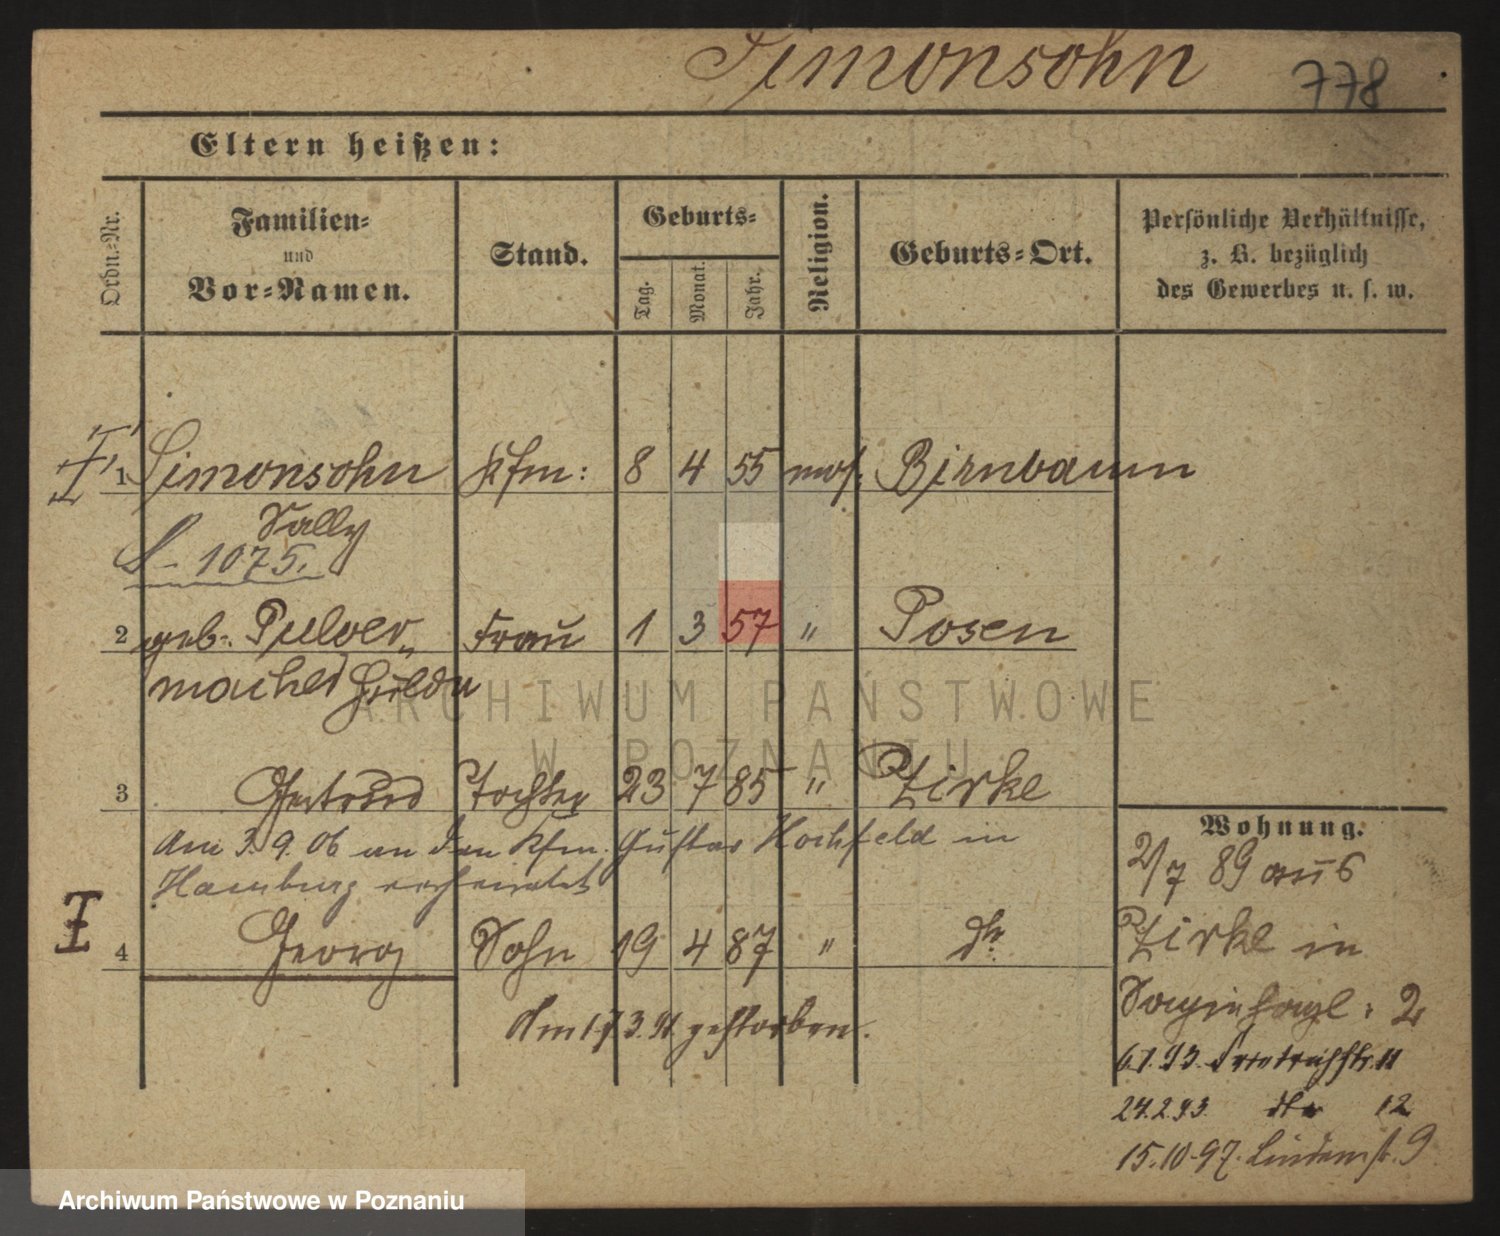 Simonsohn 778
Eltern heißen:
Ordn.-Nr.
Familien-
und
Vor-Namen.
Stand.
Geburts-
Tag.
Monat.
Jahr.
Religion.
Geburts-Ort.
Persönliche Verhältnisse,
z. B. bezüglich
des Gewerbes u. s. w.
1 Simonsohn Kfm: 8 4 55 mos. Birnbaum
Sally
S - 1075.
2 geb. Pulver- Frau 1 3 57 " Posen
macher Hulda
ARCHIWUM PAŃSTWOWE
W POZNANIU
3 Gertrud Tochter 23 7 85 " Zirke
Am 3.9.06 an den Kfm. Gustav Hochfeld in
Hamburg verheiratet
4 Georg Sohn 19 4 87 " dto
Am 17.3.91 gestorben.
Wohnung.
2/7 89 aus
Zirke in
Sapiehapl. 2
6.1.93. Friedrichstr. 11
24.2.93. dto 12
15.10.97. Lindenstr. 9
Archiwum Państwowe w Poznaniu